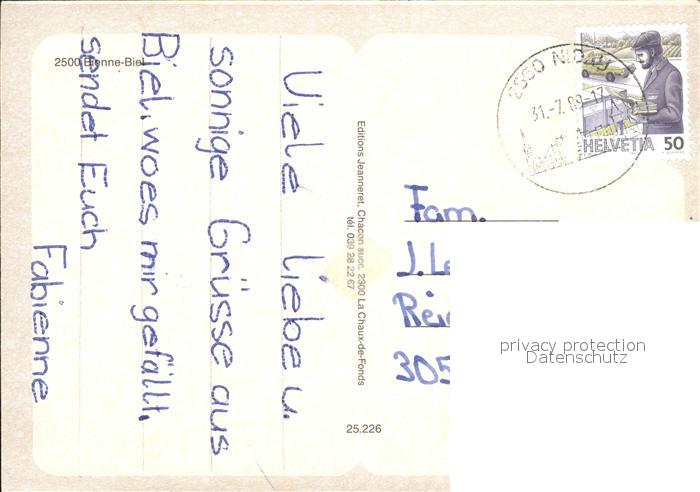 2500 Bienne-Biel
Viele liebe u.
sonnige Grüsse aus
Biel, wo es mir gefällt,
sendet Euch
Fabienne
Editions Jeanneret, Chacon succ. 2300 La Chaux-de-Fonds
tél. 039 28 22 67
25.226
2560 NIDAU
31.-7.89-17
HELVETIA 50
Fam.
J.
305
privacy protection
Datenschutz